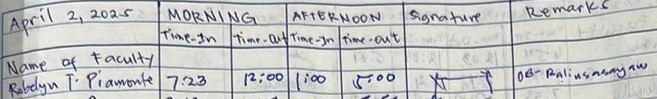 April 2, 2025 MORNING AFTERNOON Signature Remarks
Time-In Time-Out Time-In Time-Out
Name of Faculty
Robelyn T. Piamonte 7:23 12:00 1:00 5:00 OB- Balinsasayaw